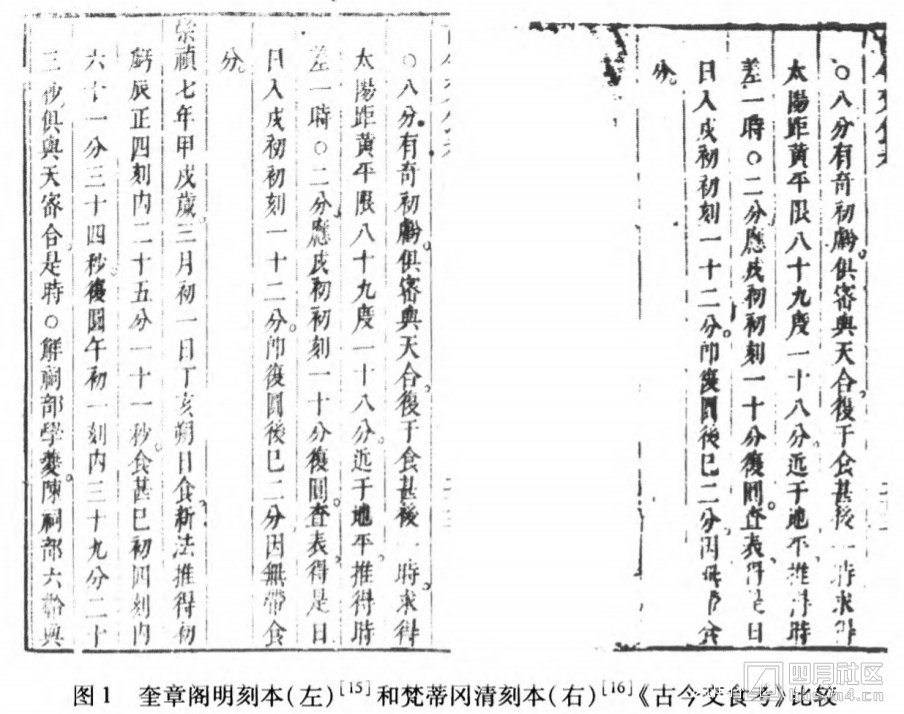 ○八分有奇初虧俱密與天合復于食甚後一時求得
太陽距黃平限八十九度一十八分近于地平推得時
差一時○二分應戌初初刻一十分復圓查表得是日
日入戌初初刻一十二分卽復圓後已二分因無帶食
分
崇禎七年甲戌歲三月初一日丁亥朔日食新法推得初
虧辰正四刻內二十五分一十一秒食甚巳初四刻內
六十一分三十四秒復圓午初一刻內三十九分二十
三秒俱與天密合是時○解祠部學夔陳祠部六韐與
○八分有奇初虧俱密與天合復于食甚後一時求得
太陽距黃平限八十九度一十八分近于地平推得時
差一時○二分應戌初初刻一十分復圓查表得是日
日入戌初初刻一十二分卽復圓後已二分因無帶食
分
图1 奎章阁明刻本(左)[15]和梵蒂冈清刻本(右)[16]《古今交食考》比较
四月社区